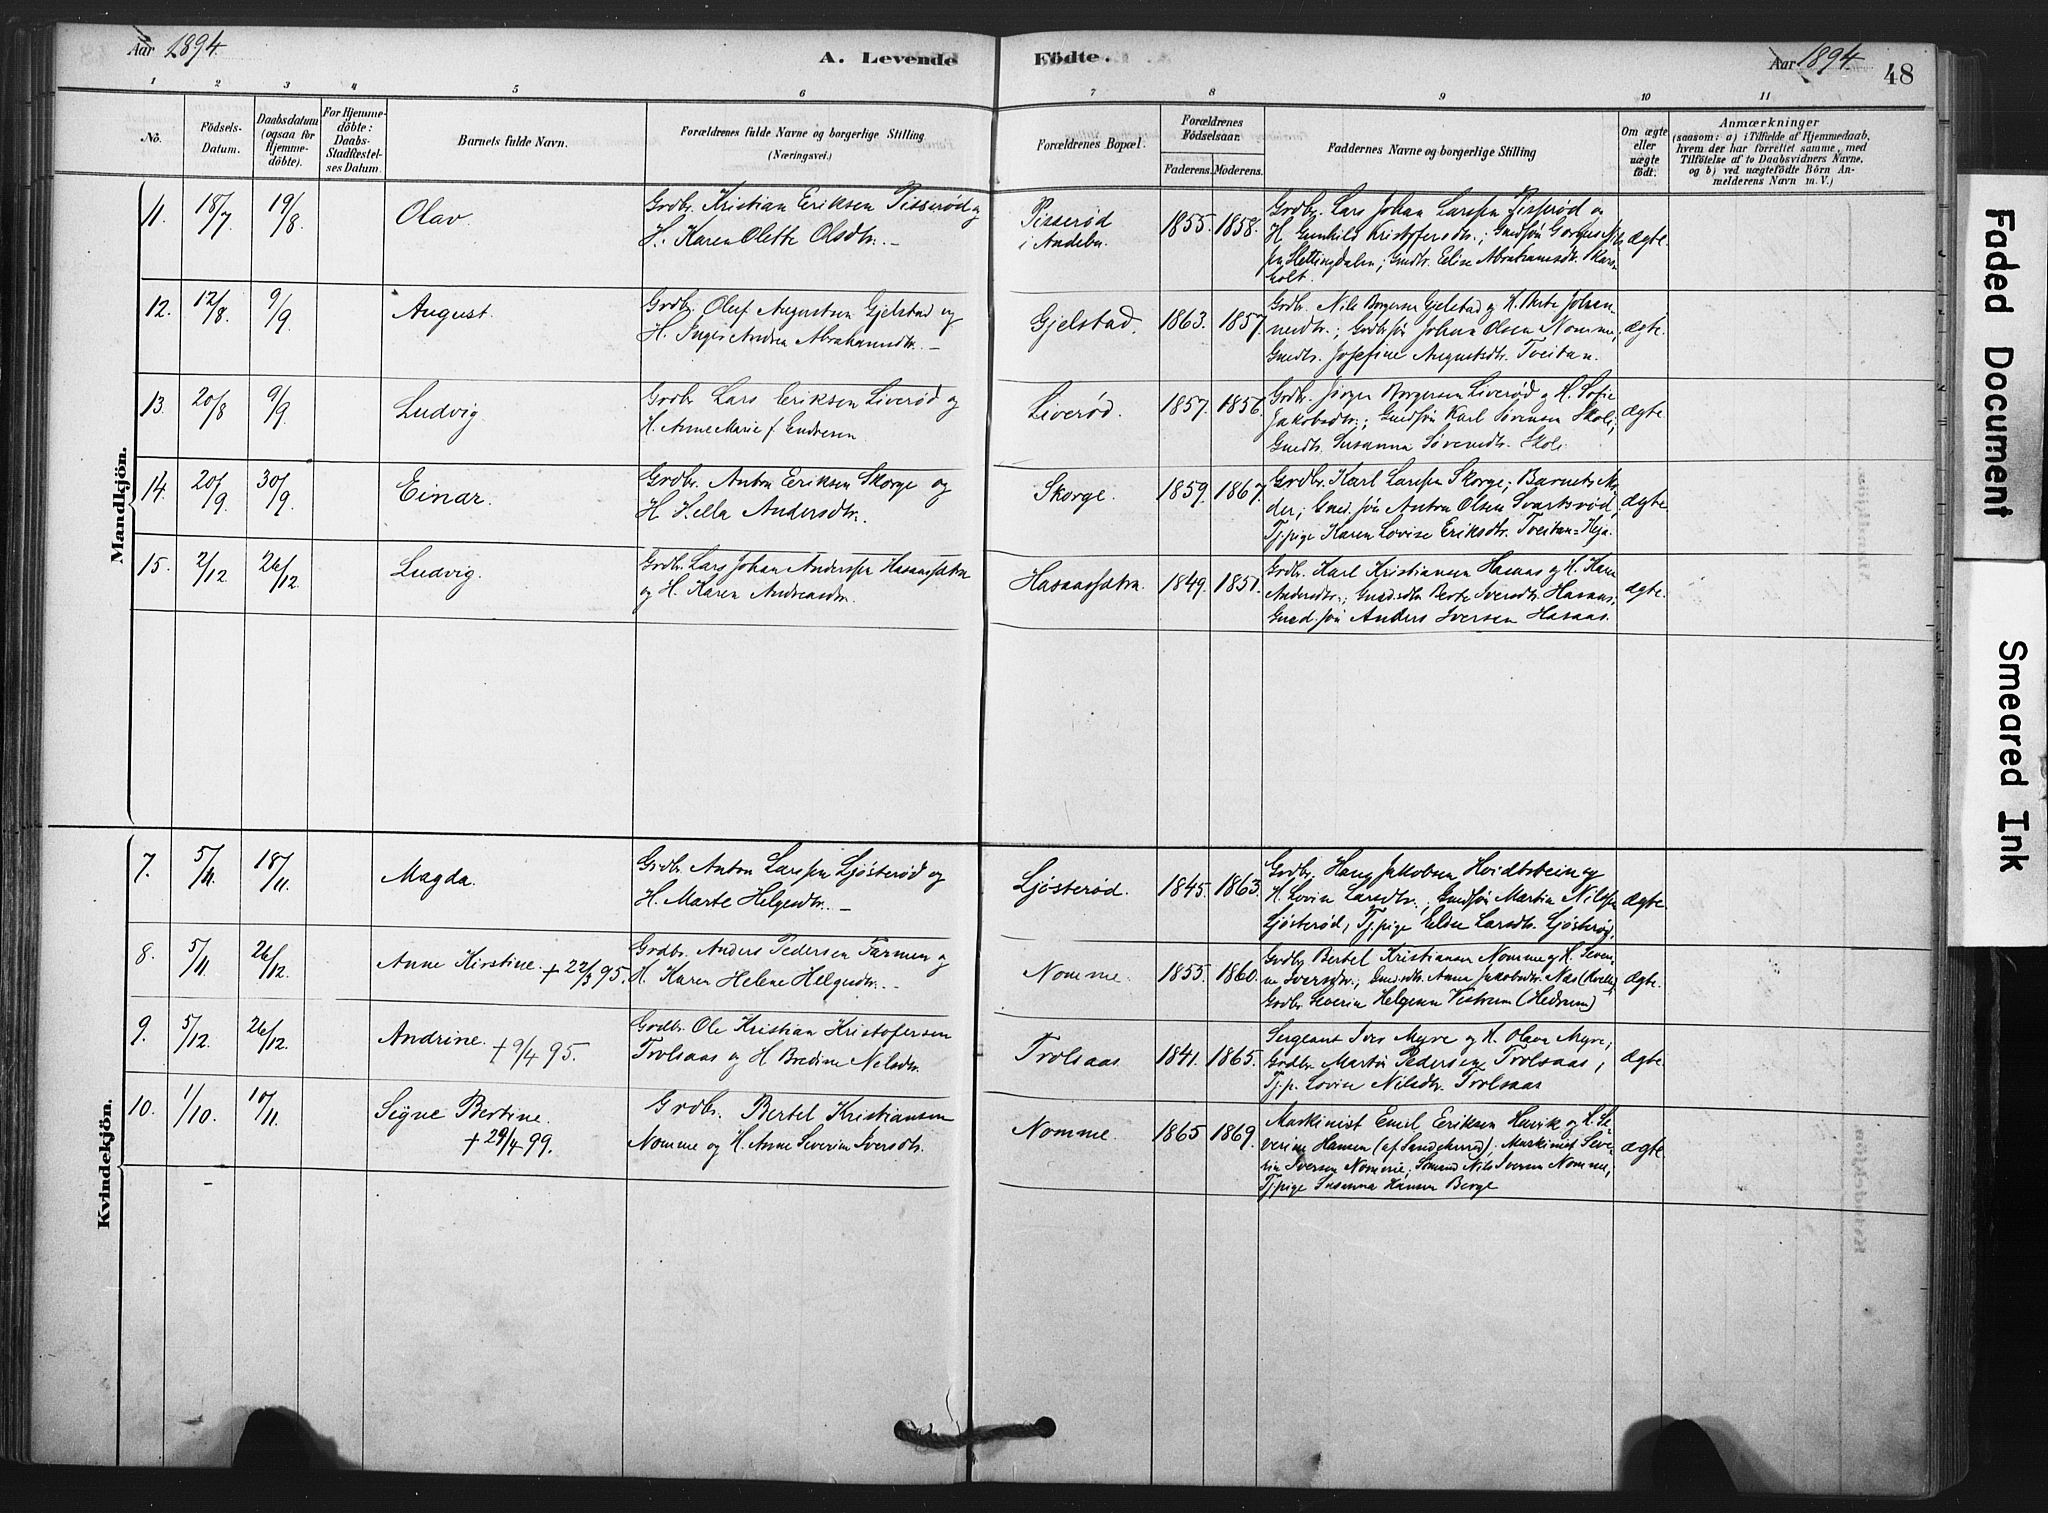 Aar 1894.
A. Levende Födte.
Aar 1894.
48
1 2 3 4 5 6 7 8 9 10 11
No.
Födsels-
Datum.
Daabsdatum
(ogsaa for
Hjemme-
döbte).
For Hjemme-
döbte:
Daabs-
Stadfæstel-
ses Datum.
Barnets fulde Navn.
Forældrenes fulde Navne og borgerlige Stilling
(Næringsvei.)
Forældrenes Bopæl.
Forældrenes
Födselsaar.
Faderens. Moderens.
Faddernes Navne og borgerlige Stilling
Om ægte
eller
uægte
født.
Anmærkninger
(saasom: a) i Tilfælde af Hjemmedaab,
hvem der har forrettet samme, med
Tilföielse af to Daabsvidners Navne,
og b) ved uægtefödte Börn An-
melderens Navn m. V.)
Mandkjön.
11. 18/7 19/8 Olav
Grdbr. Kristian Eriksen Pisserød og
H. Karen Olette Olsdtr. –
Pisserød
i Andebu
1855. 1858.
Grdbr. Lars Johan Larssen Pisserød og
H. Gunhild Kristofersdtr.; Gmdsøn
Hettingdalen; Gmdtr. Elise Abrahamsdtr. Skars-
holt.
ægte.
12. 12/8. 9/9 August.
Grdbr. Oluf Augustsen Gjelstad og
H. Inger Andrea Abrahamsdtr. –
Gjelstad. 1863. 1857.
Grdbr. Nils Borgersen Gjelstad og H. Berte Johan-
nesdtr.; Grdbrsøn Johan Olsen Nomme;
Gmdtr. Josefine Augustsdtr. Tveitan.
ægte.
13. 20/8 9/9 Ludvig.
Grdbr. Lars Eriksen Liverød og
H. Anne Marie f. Endresen
Liverød. 1857. 1856.
Grdbr. Jørgen Borgersen Liverød og H. Sofie
Jakobsdtr.; Gmdsøn Karl Sørensen Skoli;
Gmdtr. Susanna Sørensdtr. Skoli
ægte.
14. 20/9 30/9 Einar.
Grdbr. Anton Eriksen Skorge og
H. Helle Andersdtr.
Skorge. 1859. 1867.
Grdbr. Karl Larssen Skorge; Barnets Mo-
der; Gmd.søn Anton Olsen Svartsrød;
Tj.pige Karen Lovise Eriksdtr. Tveitan=Heja.
ægte
15. 2/12 26/12. Ludvig.
Grdbr. Lars Johan Anderssen Hasaassætra
og H. Karen Andreasdtr.
Hasaassætra. 1849. 1851.
Grdbr. Karl Kristiansen Hasaas og H. Karen
Andersdtr.; Gmd.sdtr. Berte Iversdtr. Hasaas;
Gmd.søn Anders Iversen Hasaas.
ægte.
Kvindekjön.
7. 5/11. 18/11. Magda.
Grdbr. Anton Larssen Ljøsterød og
H. Marte Helgesdtr. –
Ljøsterød. 1845. 1863.
Grdbr. Hans Jakobsen Hvidtstein og
H. Lovise Larsdtr.; Gmdsøn Martin Nilssen
Ljøsterød; Tj.pige Elise Larsdtr. Ljøsterød.
ægte
8. 5/11. 26/12. Anne Kirstine. + 22/3 95.
Grdbr. Anders Pedersen Farmen og
H. Karen Helene Helgesdtr. –
Nomme. 1855. 1860.
Grdbr. Bertel Kristiansen Nomme og H. Seve-
rine Iversdtr.; Gmd.sdtr. Anna Jakobsdtr. Næs
Grdbr. Severin Helgesen Vestrum (Hedrum)
ægte.
9. 5/12. 26/12. Andrine. + 9/4 95.
Grdbr. Ole Kristian Kristofersen
Trolsaas og H. Bredine Nilsdtr.
Trolsaas 1841. 1865.
Sergeant Iver Myre og H. Olava Myre;
Grdbr. Martin Pedersen Trolsaas;
Tj.p. Lovise Nilsdtr. Trolsaas
ægte.
10. 1/10. 10/11. Signe Bertine.
+ 29/4 99.
Grdbr. Bertel Kristiansen
Nomme og H. Anne Severine Iversdtr.
Nomme. 1865. 1869.
Maskinist Emil Eriksen Havik og H. Se-
verine Hansen (af Sandeherred); Maskinist Seve-
rin Iversen Nomme; Sømand Nils Iversen Nomme;
Tj.pige Susanna Hansen Berge
ægte
Faded Document
Smeared Ink